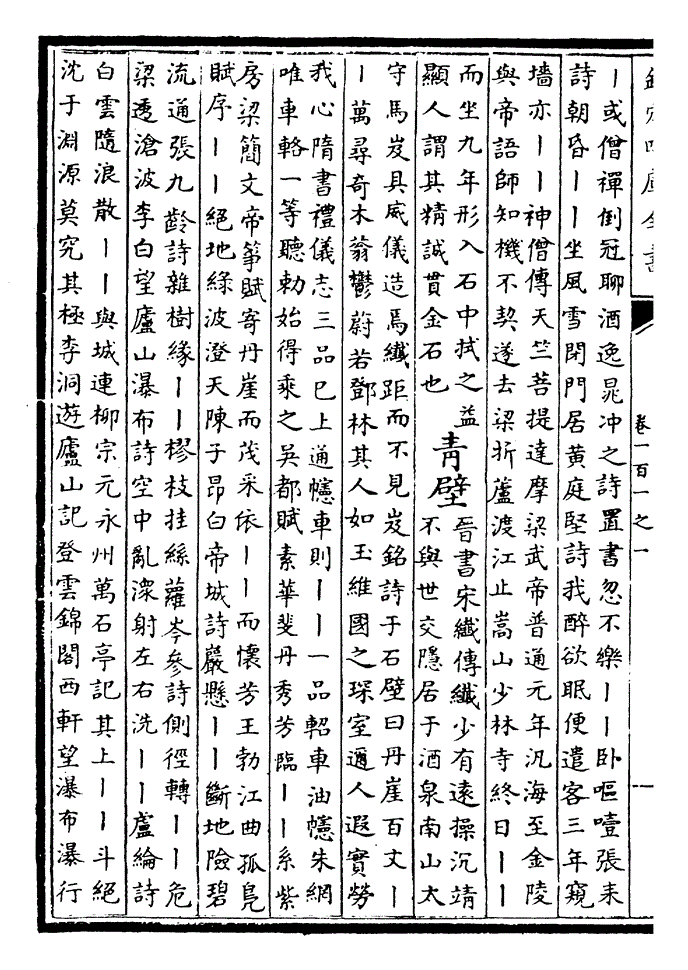 欽定四庫全書
卷一百一之一
一
丨或僧禪倒冠聊酒逸晁冲之詩置書忽不樂丨丨卧嘔噎張耒
詩朝昏丨丨坐風雪閉門居黄庭堅詩我醉欲眠便遣客三年窺
墻亦丨丨神僧傳天竺菩提達摩梁武帝普通元年汎海至金陵
與帝語師知機不契遂去梁折蘆渡江止嵩山少林寺終日丨丨
而坐九年形入石中拭之益
顯人謂其精誠貫金石也
青壁
晉書宋纎傳纎少有遠操沉靖
不與世交隱居于酒泉南山太
守馬岌具威儀造焉纎距而不見岌銘詩于石壁曰丹崖百丈丨
丨萬尋奇木蓊鬱蔚若鄧林其人如玉維國之琛室邇人遐實勞
我心隋書禮儀志三品巳上通幰車則丨丨一品軺車油幰朱網
唯車輅一等聽勅始得乘之吳都賦素華斐丹秀芳臨丨丨系紫
房梁簡文帝箏賦寄丹崖而茂采依丨丨而懷芳王勃江曲孤鳧
賦序丨丨絕地綠波澄天陳子昂白帝城詩巖懸丨丨斷地險碧
流通張九齡詩雜樹緣丨丨樛枝挂絲蘿岑參詩側徑轉丨丨危
梁透滄波李白望廬山瀑布詩空中亂潨射左右洗丨丨盧綸詩
白雲隨浪散丨丨與城連柳宗元永州萬石亭記其上丨丨斗絕
沈于淵源莫究其極李洞遊廬山記登雲錦閣西軒望瀑布瀑行